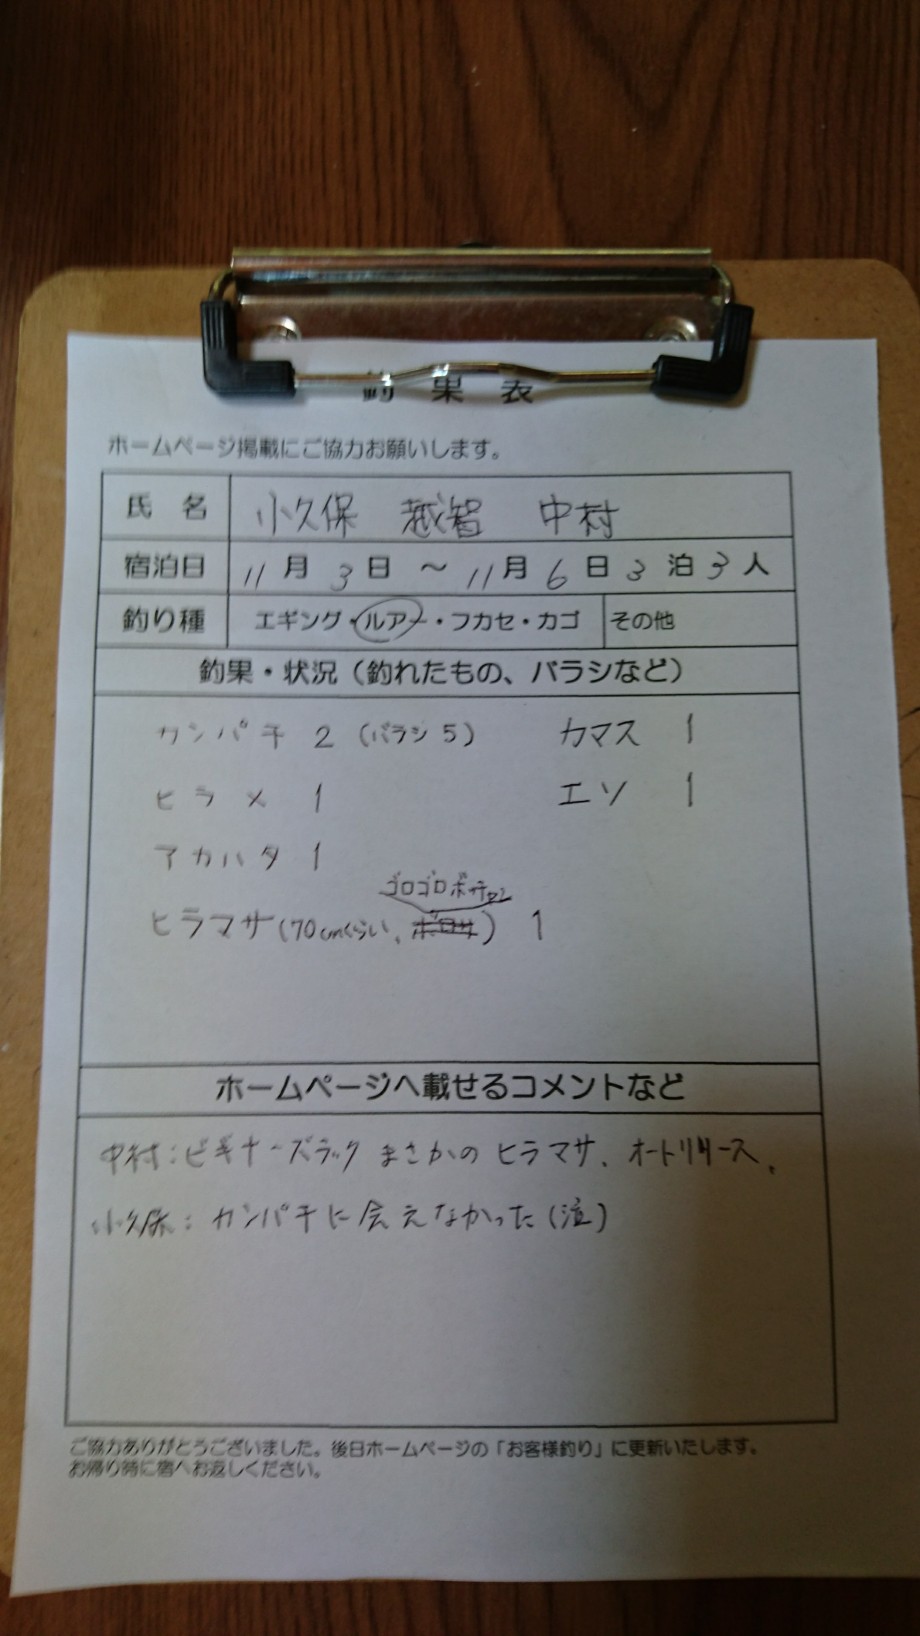 釣果表
ホームページ掲載にご協力お願いします。
氏名 小久保 越智 中村
宿泊日 11月3日 ～ 11月6日 3泊3人
釣り種 エギング・ルアー・フカセ・カゴ その他
釣果・状況（釣れたもの、バラシなど）
カンパチ 2 (バラシ 5) カマス 1
ヒラメ 1 エソ 1
アカハタ 1
ゴロゴロボッチャン
ヒラマサ(70cmくらい、) 1
ホームページへ載せるコメントなど
中村：ビギナーズラック まさかの ヒラマサ、オートリリース、
小久保：カンパチに会えなかった(泣)
ご協力ありがとうございました。後日ホームページの「お客様釣り」に更新いたします。
お帰り時に宿へお返しください。